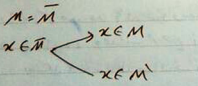 M = M̅
x ∈ M̅ → x ∈ M
x ∈ M'